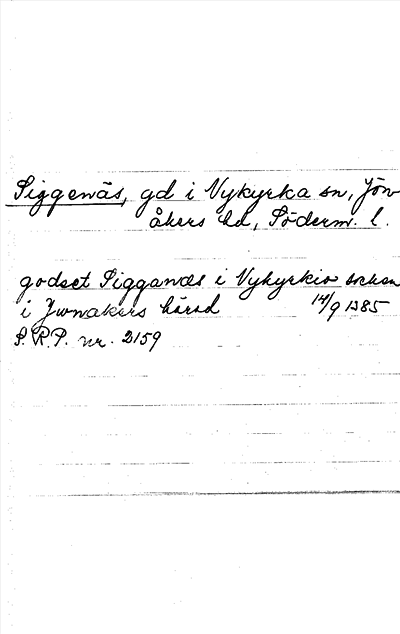 Siggenäs, gd i Vykyrka sn, Jön-
åkers hd, Söderm. l.
godset Sigganæs i Vykyrkio sokken
i Jwnakers härad 14/9 1385
S.R.P. nr. 2159